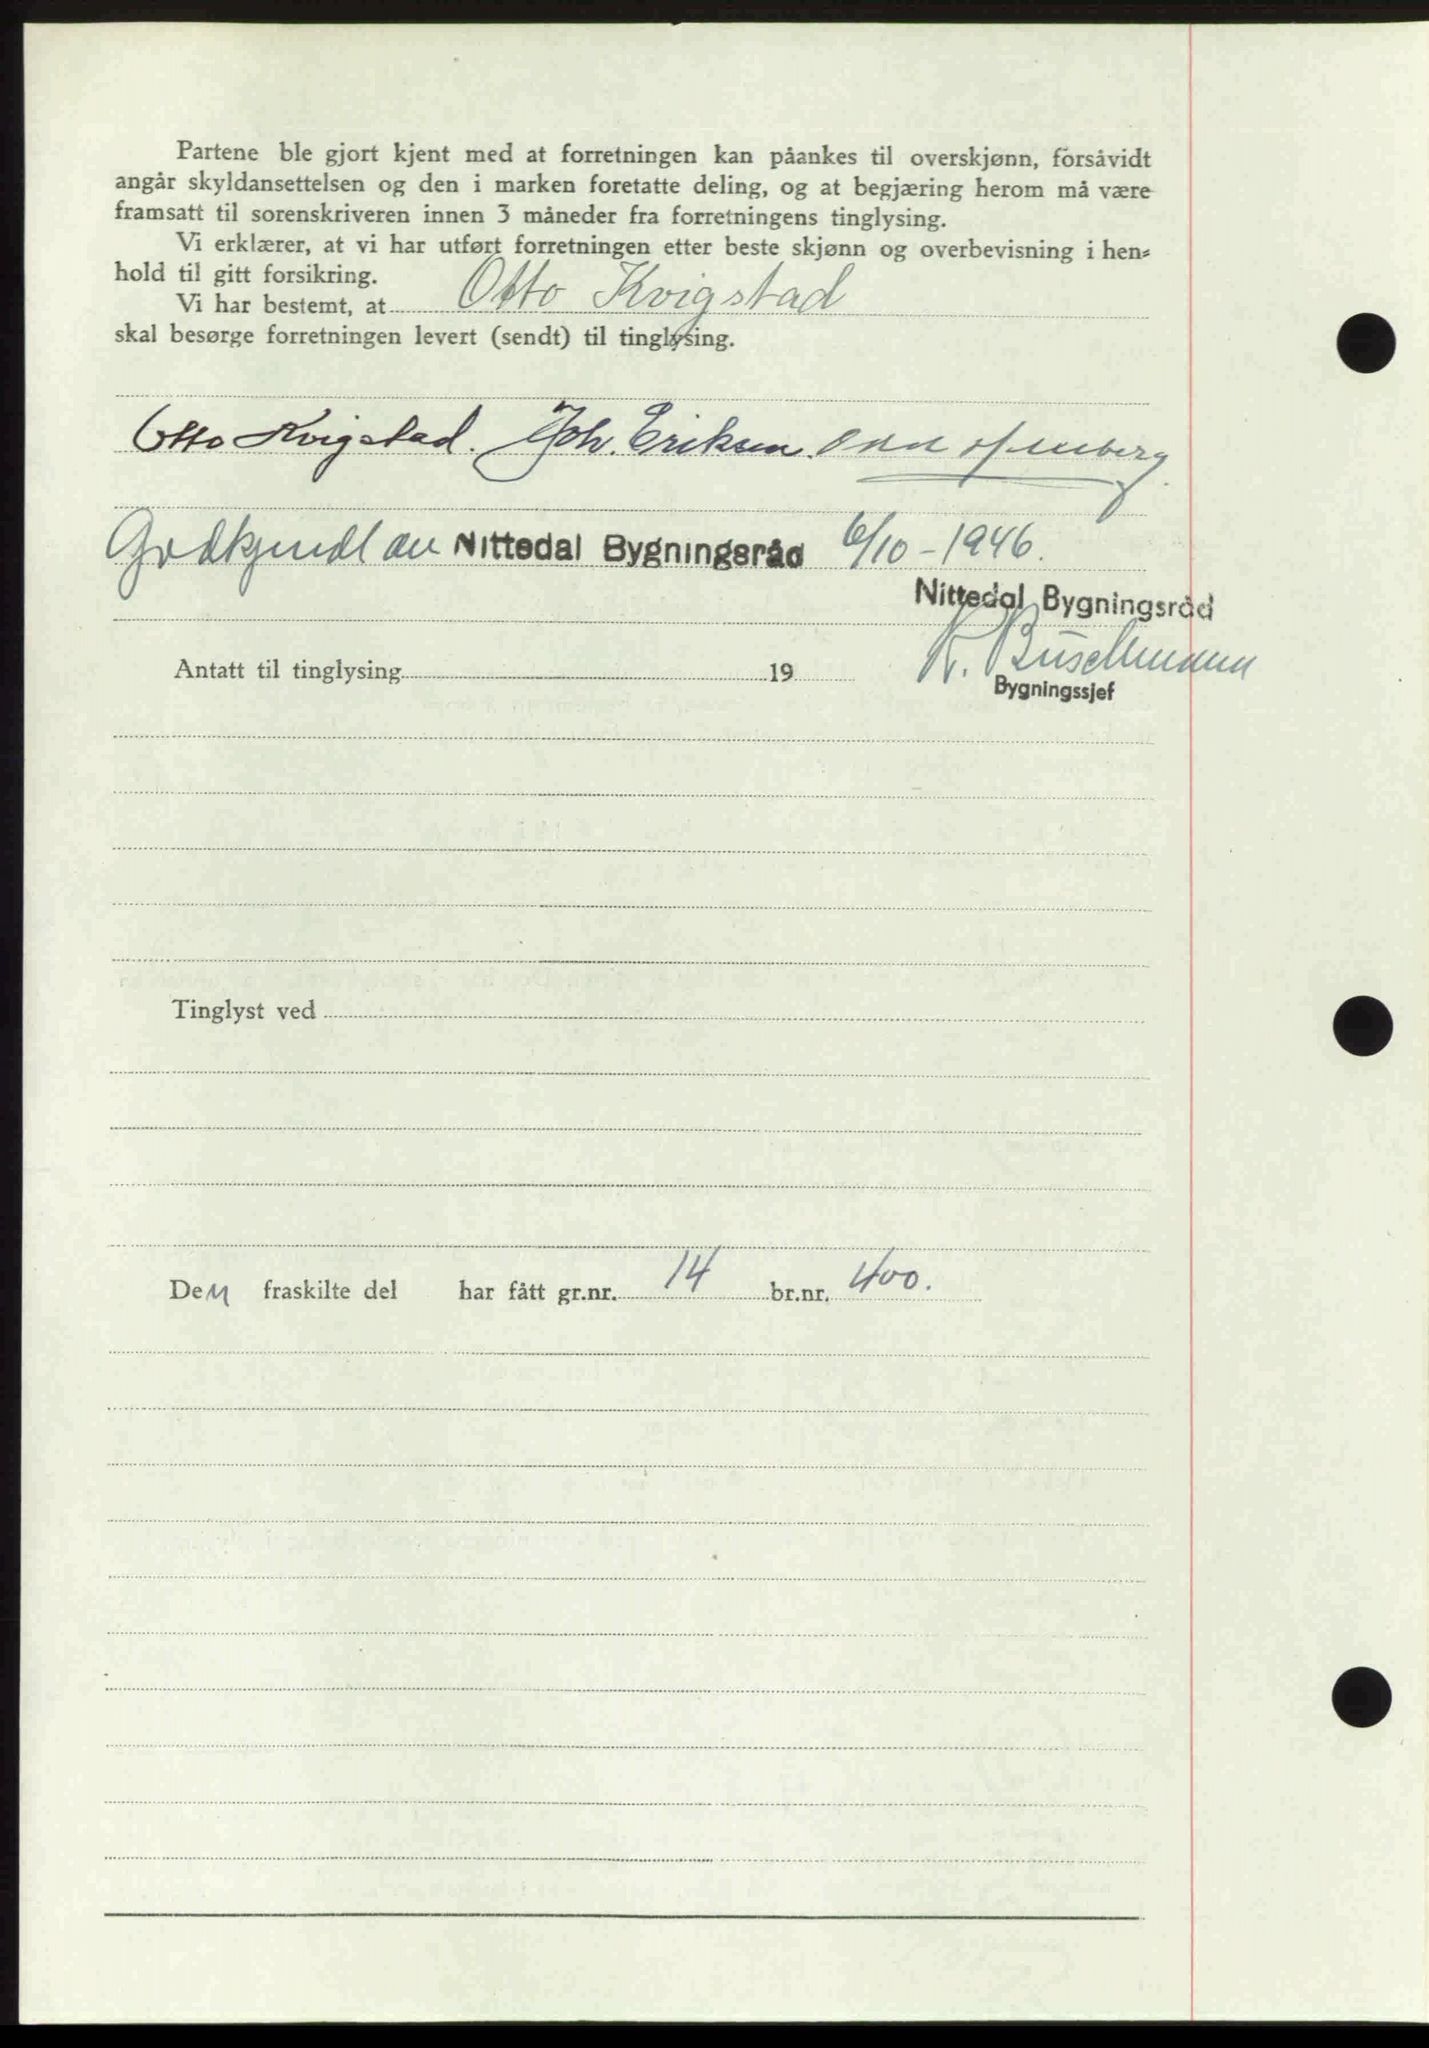 Partene ble gjort kjent med at forretningen kan påankes til overskjønn, forsåvidt
angår skyldansettelsen og den i marken foretatte deling, og at begjæring herom må være
framsatt til sorenskriveren innen 3 måneder fra forretningens tinglysing.
Vi erklærer, at vi har utført forretningen etter beste skjønn og overbevisning i hen-
hold til gitt forsikring.
Vi har bestemt, at Otto Kvigstad
skal besørge forretningen levert (sendt) til tinglysing.
Otto Kvigstad. Joh. Eriksen.
Godkjendt av Nittedal Bygningsråd 6/10-1946.
Nittedal Bygningsråd
Antatt til tinglysing 19
K. Buschmann
Bygningssjef
Tinglyst ved
Den fraskilte del har fått gr.nr. 14 br.nr. 400.